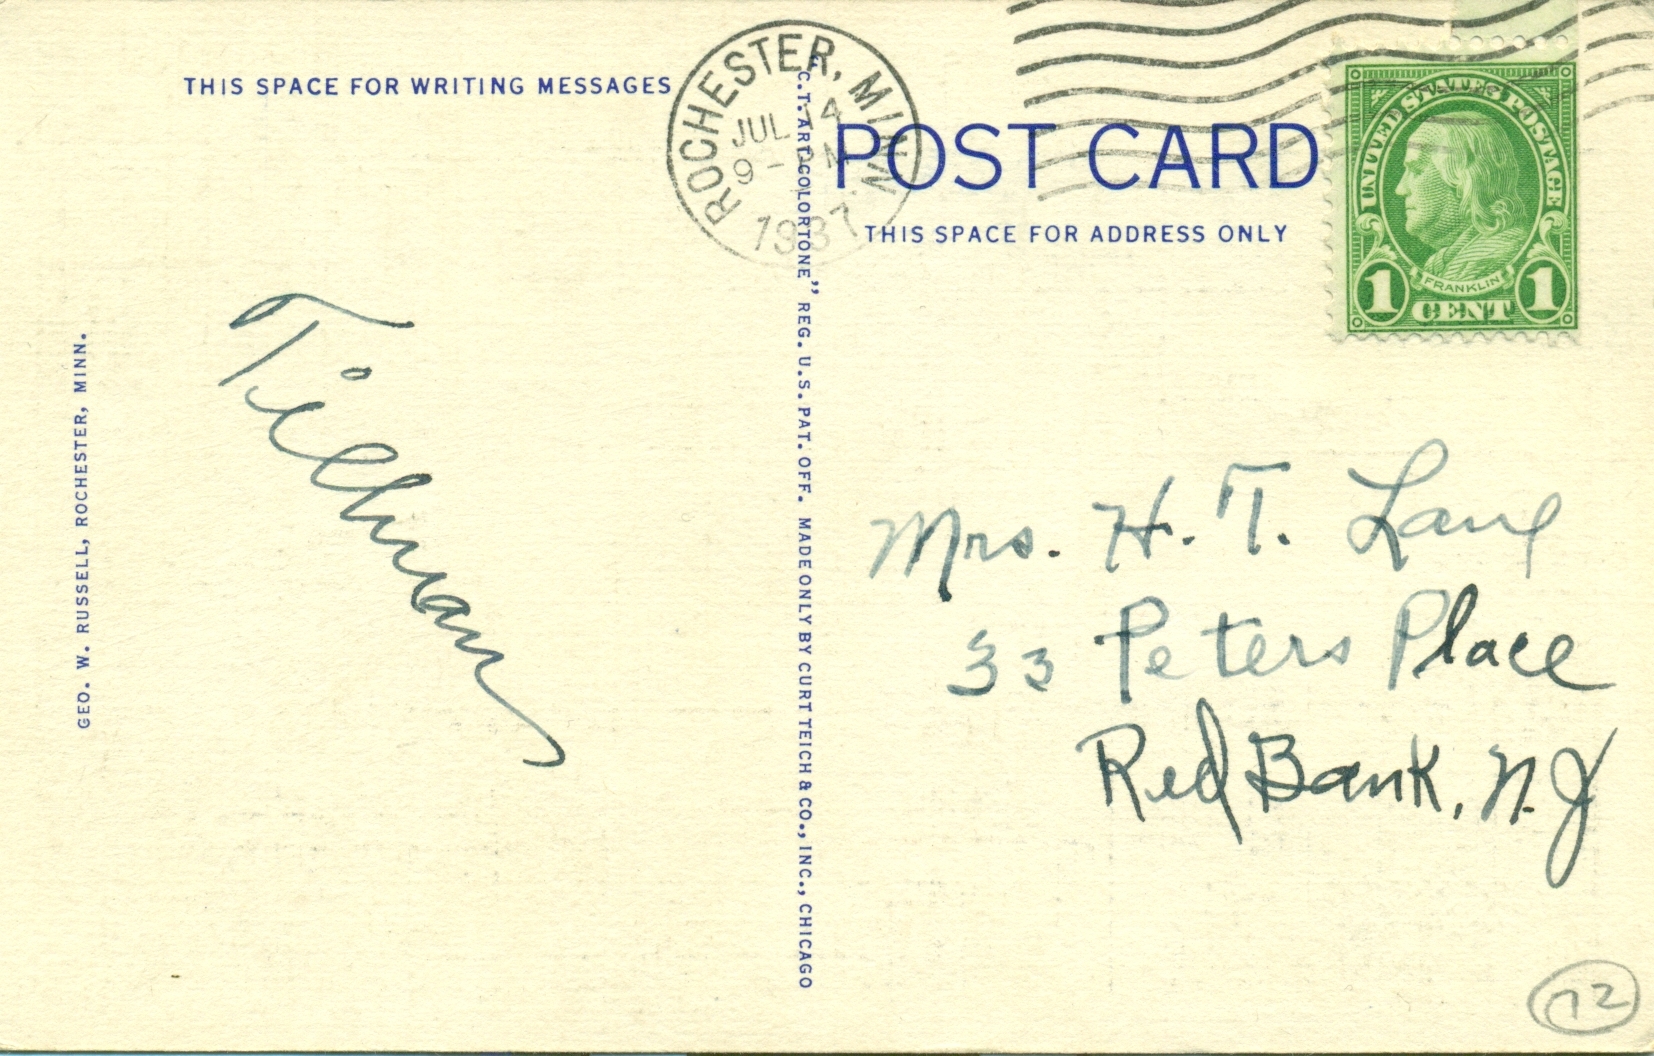 THIS SPACE FOR WRITING MESSAGES
ROCHESTER, MINN.
JUL 14
9 - PM
1937
POST CARD
THIS SPACE FOR ADDRESS ONLY
UNITED STATES POSTAGE
FRANKLIN
1 CENT 1
GEO. W. RUSSELL, ROCHESTER, MINN.
"C.T. ART-COLORTONE" REG. U.S. PAT. OFF. MADE ONLY BY CURT TEICH & CO., INC., CHICAGO
Tillman
Mrs. H. T. Lane
33 Peters Place
Red Bank, N.J
72